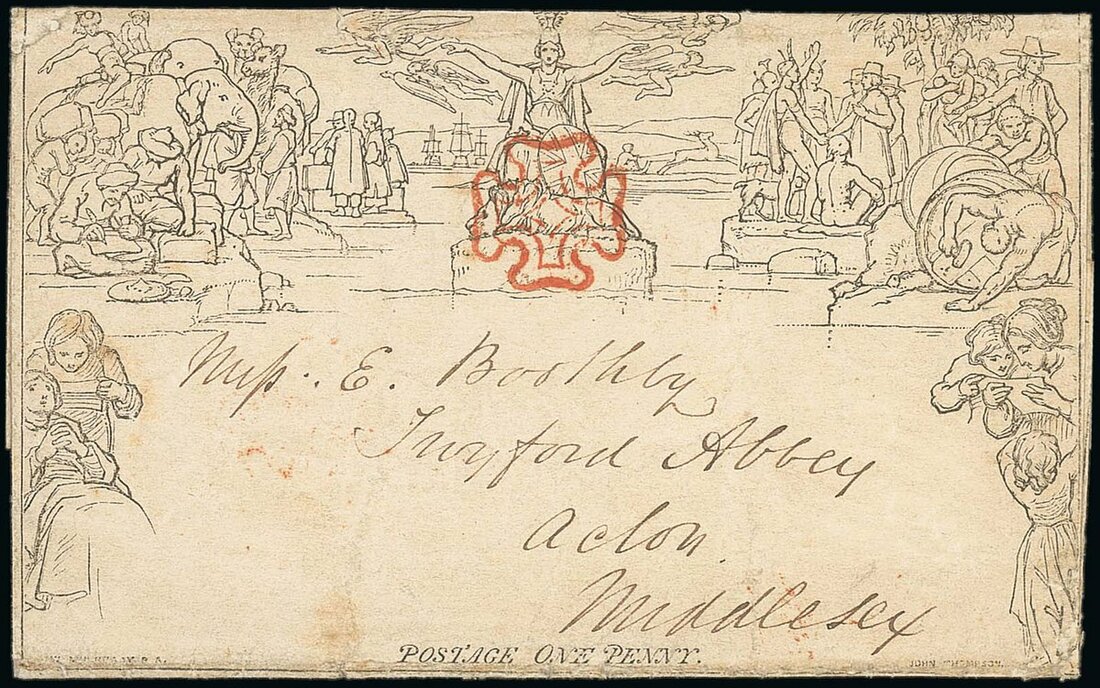 Miss. E. Boothby
Twyford Abbey
Acton.
Middlesex
POSTAGE ONE PENNY.
W. MULREADY R.A.
JOHN THOMPSON.